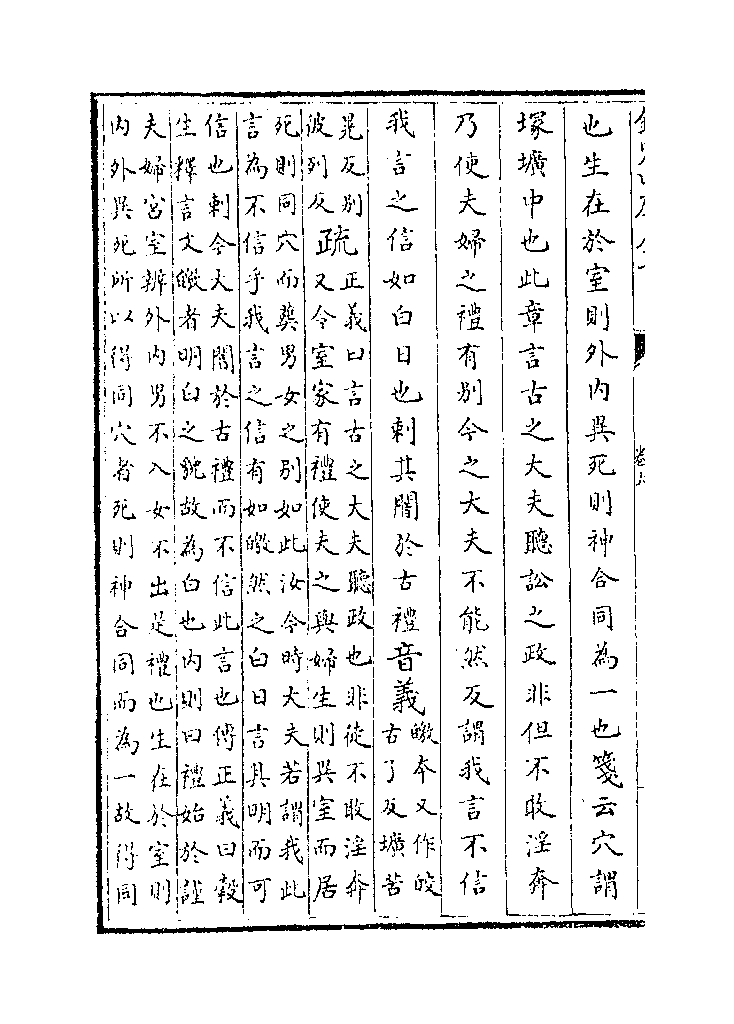 也生在於室則外内異死則神合同為一也箋云穴謂
塚壙中也此章言古之大夫聽訟之政非但不敢淫奔
乃使夫婦之禮有别今之大夫不能然反謂我言不信
我言之信如白日也刺其闇於古禮音義皦本又作皎
古了反壙苦
晃反别
彼列反
疏正義曰言古之大夫聽政也非徒不敢淫奔
又令室家有禮使夫之與婦生則異室而居
死則同穴而葬男女之别如此汝今時大夫若謂我此
言為不信乎我言之信有如皦然之白日言其明而可
信也刺今大夫闇於古禮而不信此言也傳正義曰穀
生釋言文皦者明白之貌故為白也内則曰禮始於謹
夫婦宫室辨外内男不入女不出是禮也生在於室則
内外異死所以得同穴者死則神合同而為一故得同